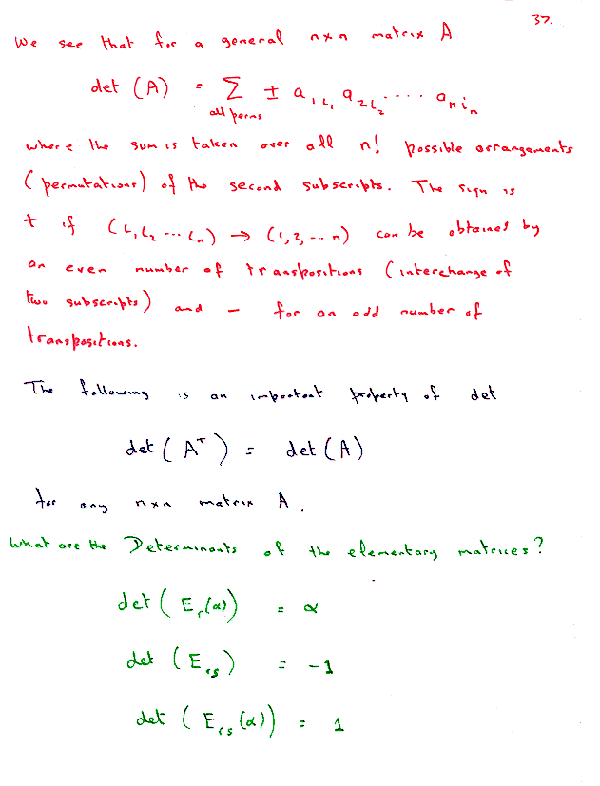 37.
We see that for a general n×n matrix A
det (A) = Σ ± a₁ᵢ₁ a₂ᵢ₂ .... aₙᵢₙ
all perms
where the sum is taken over all n! possible arrangements
(permutations) of the second subscripts. The sign is
+ if (i₁ i₂ ... iₙ) → (1, 2, ... n) can be obtained by
an even number of transpositions (interchange of
two subscripts) and − for an odd number of
transpositions.
The following is an important property of det
det (Aᵀ) = det (A)
for any n×n matrix A.
What are the Determinants of the elementary matrices?
det (Eᵣ(α)) = α
det (Eᵣₛ) = -1
det (Eᵣₛ(α)) = 1